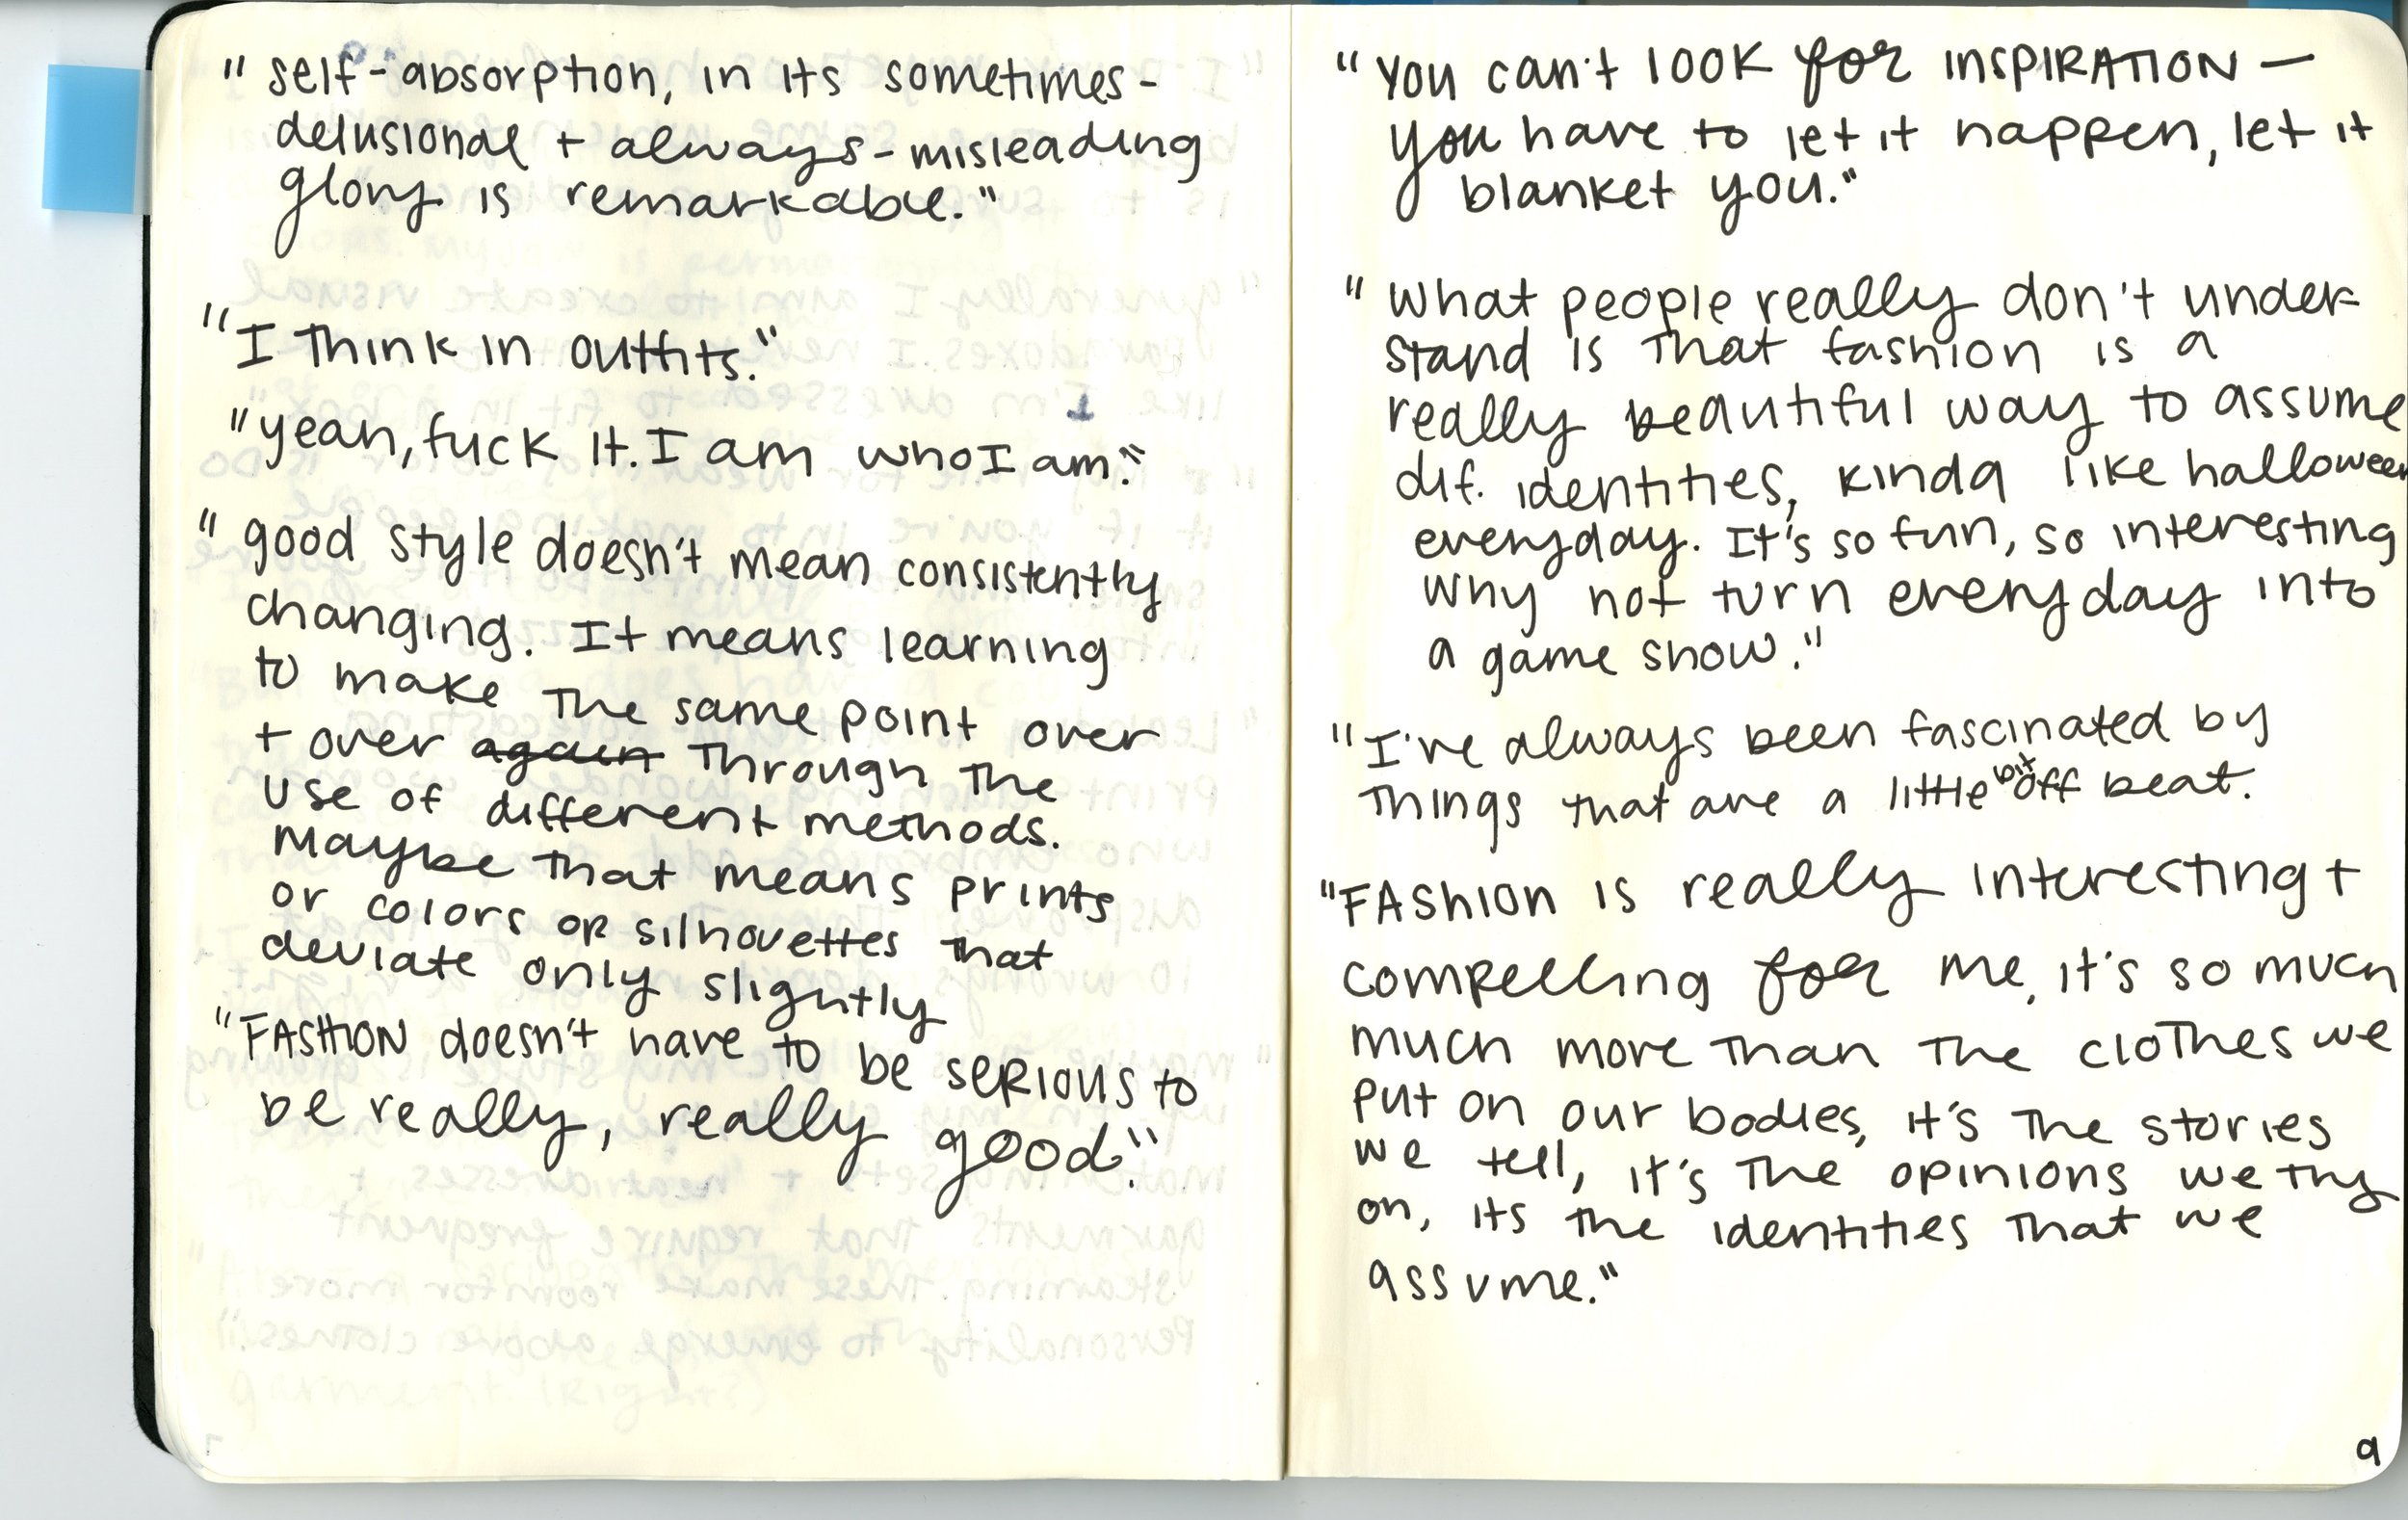 " self-absorption, in its sometimes-
delusional + always-misleading
glory is remarkable."
"I think in outfits."
"yeah, fuck it. I am who I am."
" good style doesn't mean consistently
changing. It means learning
to make the same point over
+ over again through the
use of different methods.
Maybe that means prints
or colors or silhouettes that
deviate only slightly
"FASHION doesn't have to be serious to
be really, really good."
"You can't look for INSPIRATION —
you have to let it happen, let it
blanket you."
" What people really don't under-
stand is that fashion is a
really beautiful way to assume
dif. identities, kinda like halloween
everyday. It's so fun, so interesting
why not turn everyday into
a game show."
"I've always been fascinated by
things that are a little bit off beat.
"FASHION is really interesting +
compelling for me, it's so much
much more than the clothes we
put on our bodies, it's the stories
we tell, it's the opinions we try
on, its the identities that we
assume."
9